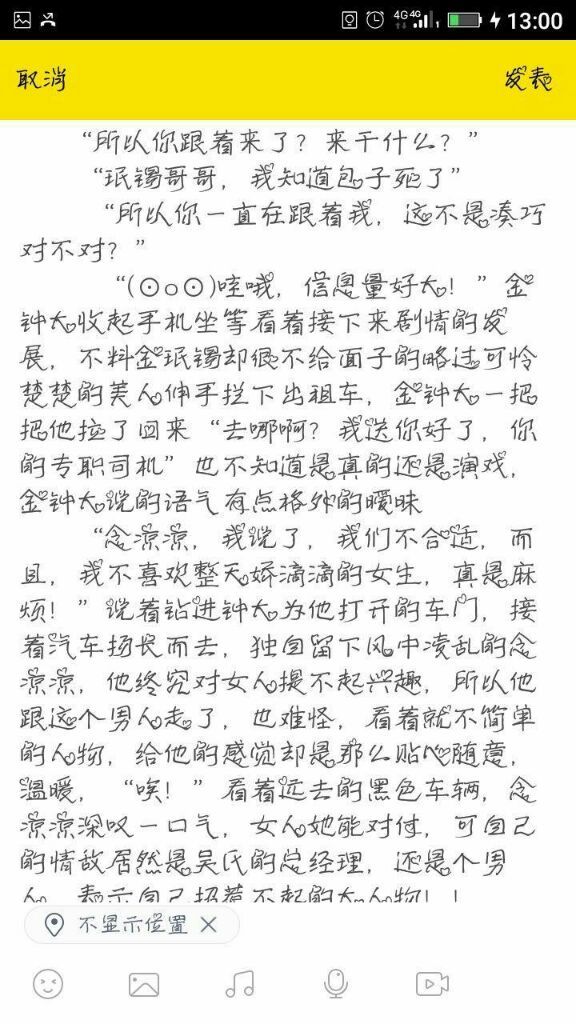 4G 4G 13:00
取消 发表
“所以你跟着来了？来干什么？”
“珉锡哥哥，我知道包子死了”
“所以你一直在跟着我，这不是凑巧
对不对？”
“(⊙o⊙)哇哦，信息量好大！”金
钟大收起手机坐等看着接下来剧情的发
展，不料金珉锡却很不给面子的略过可怜
楚楚的美人伸手拦下出租车，金钟大一把
把他拉了回来“去哪啊？我送你好了，你
的专职司机”也不知道是真的还是演戏，
金钟大说的语气有点格外的暧昧
“念凉凉，我说了，我们不合适，而
且，我不喜欢整天娇滴滴的女生，真是麻
烦！”说着钻进钟大为他打开的车门，接
着汽车扬长而去，独自留下风中凌乱的念
凉凉，他终究对女人提不起兴趣，所以他
跟这个男人走了，也难怪，看着就不简单
的人物，给他的感觉却是那么贴心随意，
温暖，“唉！”看着远去的黑色车辆，念
凉凉深叹一口气，女人她能对付，可自己
的情敌居然是吴氏的总经理，还是个男
人，表示自己招惹不起的大人物！！
不显示位置